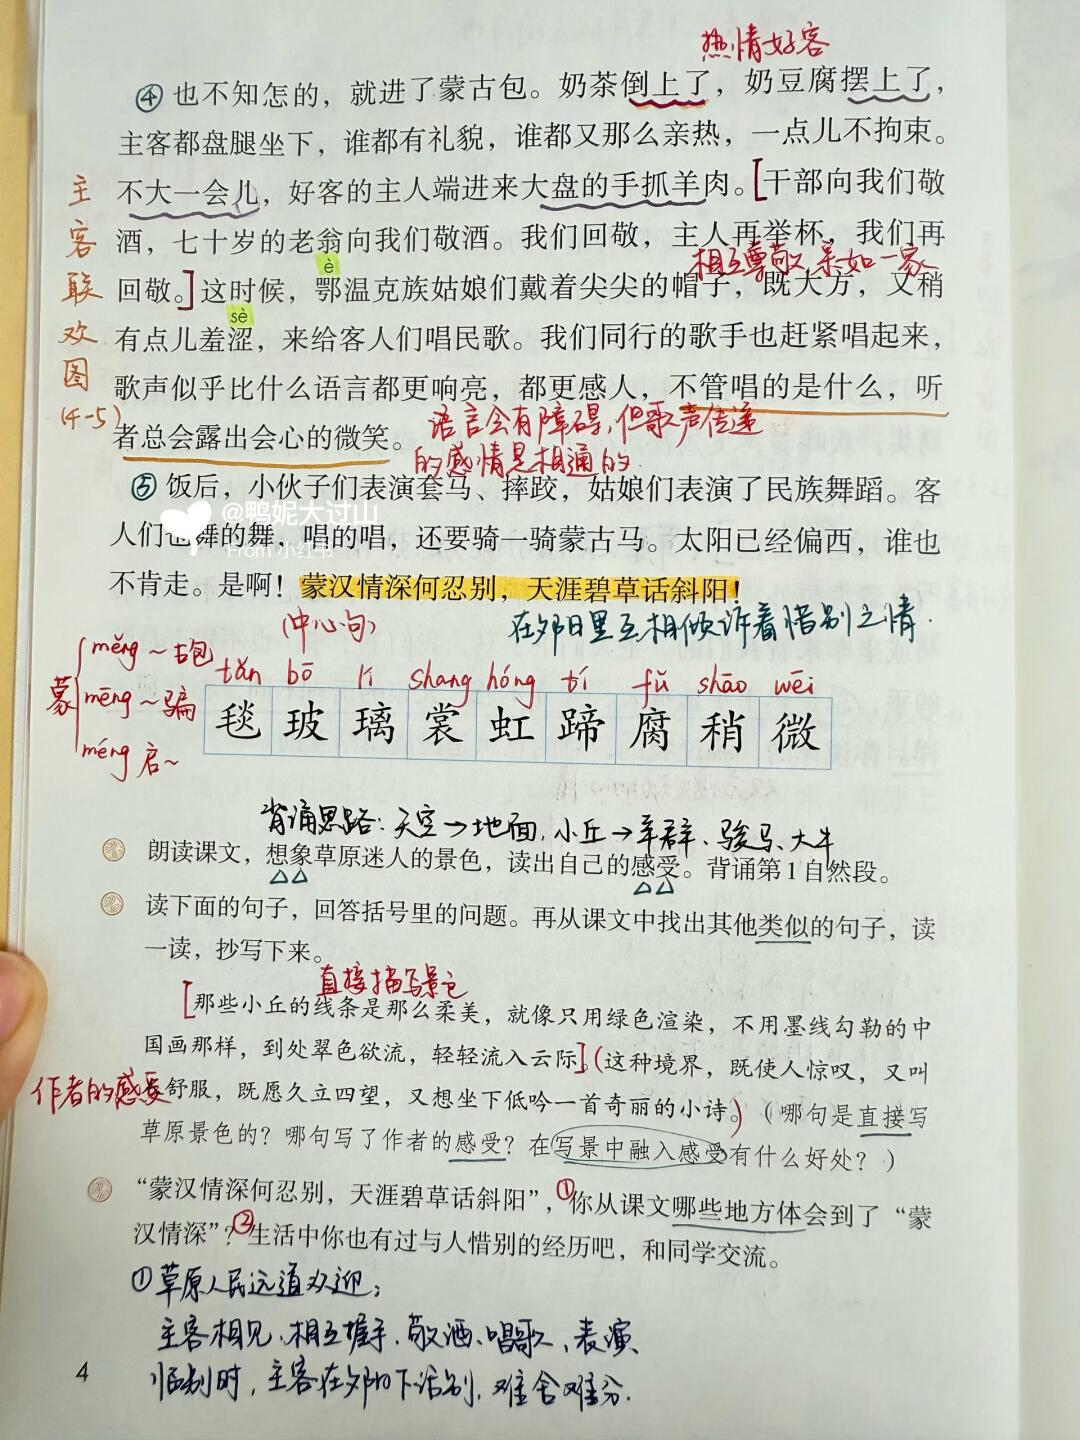 热情好客
④也不知怎的，就进了蒙古包。奶茶倒上了，奶豆腐摆上了，
主客都盘腿坐下，谁都有礼貌，谁都又那么亲热，一点儿不拘束。
不大一会儿，好客的主人端进来大盘的手抓羊肉。[干部向我们敬
酒，七十岁的老翁向我们敬酒。我们回敬，主人再举杯，我们再
相互尊敬 亲如一家
è
回敬。]这时候，鄂温克族姑娘们戴着尖尖的帽子，既大方，又稍
sè
有点儿羞涩，来给客人们唱民歌。我们同行的歌手也赶紧唱起来，
歌声似乎比什么语言都更响亮，都更感人，不管唱的是什么，听
者总会露出会心的微笑。
语言会有障碍，但歌声传递
的感情是相通的
主客联欢图
(4-5)
⑤饭后，小伙子们表演套马、摔跤，姑娘们表演了民族舞蹈。客
人们也舞的舞，唱的唱，还要骑一骑蒙古马。太阳已经偏西，谁也
不肯走。是啊！蒙汉情深何忍别，天涯碧草话斜阳！
@鸭妮大过山
From 小红书
(中心句)
在夕阳里互相倾诉着惜别之情.
蒙
měng ~古包
mēng ~骗
méng 启~
tǎn bō lí shang hóng tí fǔ shāo wēi
毯 玻 璃 裳 虹 蹄 腐 稍 微
背诵思路：天空→地面，小丘→羊群、骏马、大牛
朗读课文，想象草原迷人的景色，读出自己的感受。背诵第1自然段。
读下面的句子，回答括号里的问题。再从课文中找出其他类似的句子，读
一读，抄写下来。
直接描写景色
[那些小丘的线条是那么柔美，就像只用绿色渲染，不用墨线勾勒的中
国画那样，到处翠色欲流，轻轻流入云际]。(这种境界，既使人惊叹，又叫
作者的感受
舒服，既愿久立四望，又想坐下低吟一首奇丽的小诗。)（哪句是直接写
草原景色的？哪句写了作者的感受？在写景中融入感受有什么好处？）
“蒙汉情深何忍别，天涯碧草话斜阳”，①你从课文哪些地方体会到了“蒙
汉情深”？②生活中你也有过与人惜别的经历吧，和同学交流。
①草原人民远道欢迎；
主客相见、相互握手、敬酒、唱歌、表演、
临别时，主客在夕阳下话别，难舍难分.
4